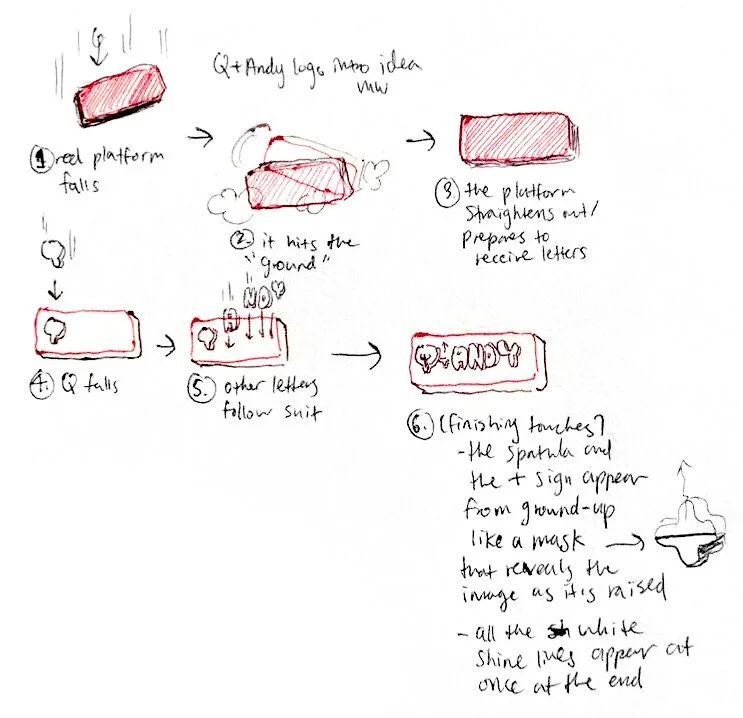 Q
Q+Andy logo intro idea
MW
1. red platform
falls
2. it hits the
"ground"
3. the platform
straightens out/
prepares to
receive letters
Q
Q
4. Q falls
Q
A
NDY
5. other letters
follow suit
Q+ANDY
6. (finishing touches)
- the spatula and
the + sign appear
from ground-up
like a mask
that reveals the
image as it is raised
- all the white
shine lines appear at
once at the end